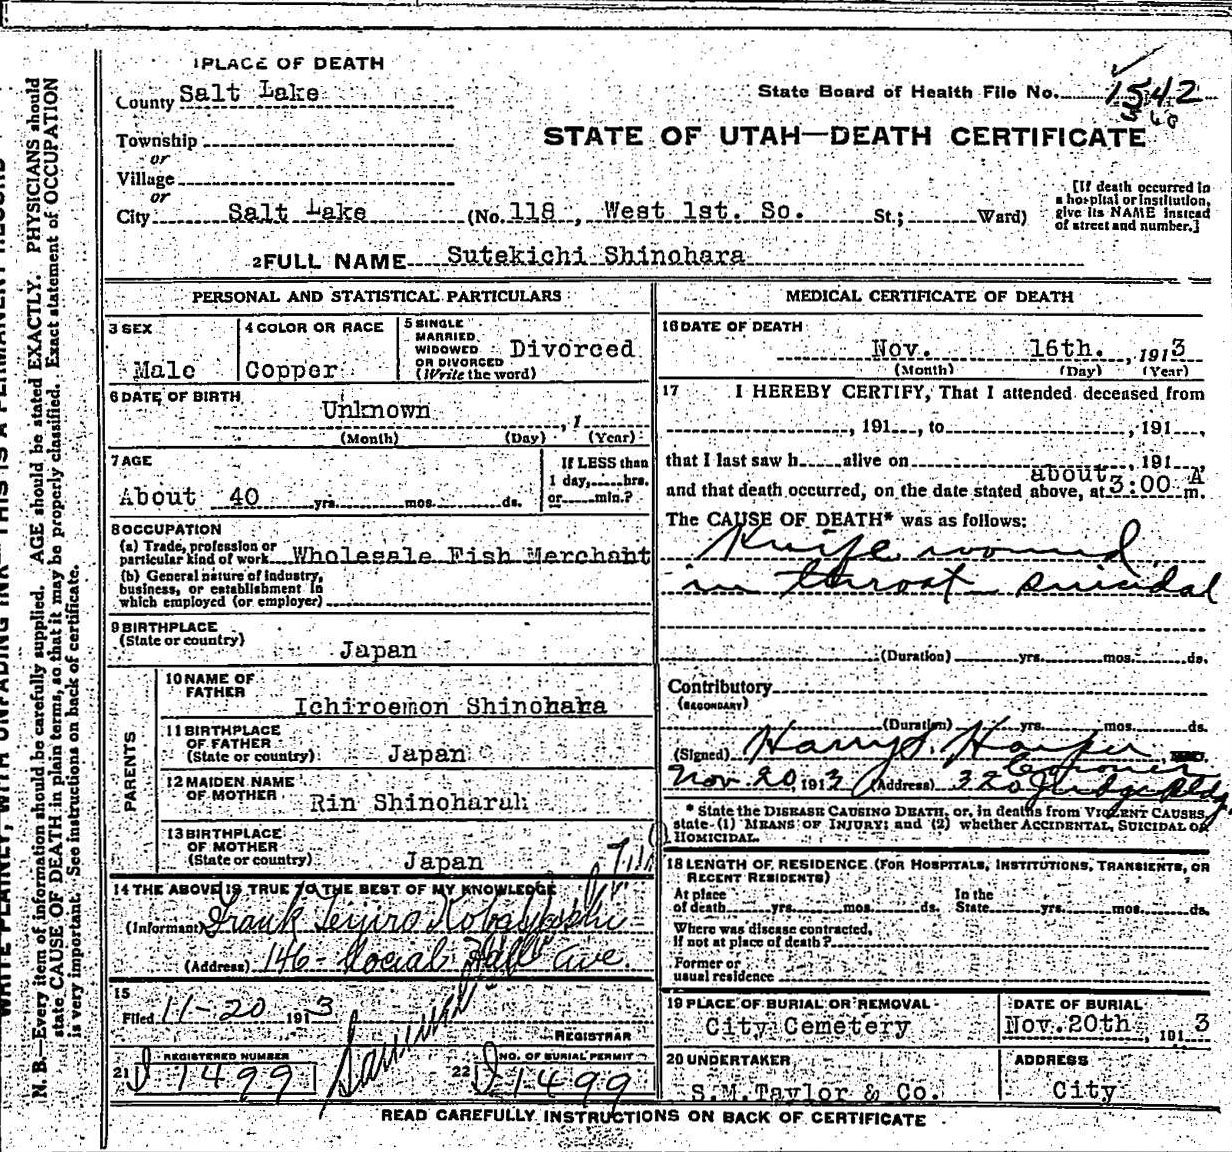 1 PLACE OF DEATH
County Salt Lake
State Board of Health File No. 1542
360
STATE OF UTAH—DEATH CERTIFICATE
Township
or
Village
or
City Salt Lake (No. 118, West 1st. So. St.; Ward)
[If death occurred in a hospital or institution, give its NAME instead of street and number.]
2 FULL NAME Sutekichi Shinohara
PERSONAL AND STATISTICAL PARTICULARS
3 SEX
Male
4 COLOR OR RACE
Copper
5 SINGLE
MARRIED
WIDOWED
OR DIVORCED
(Write the word)
Divorced
6 DATE OF BIRTH
Unknown , 1
(Month) (Day) (Year)
7 AGE
About 40 yrs. mos. ds.
If LESS than
1 day, hrs.
or min.?
8 OCCUPATION
(a) Trade, profession or
particular kind of work Wholesale Fish Merchant
(b) General nature of industry,
business, or establishment in
which employed (or employer)
9 BIRTHPLACE
(State or country)
Japan
PARENTS
10 NAME OF
FATHER
Ichiroemon Shinohara
11 BIRTHPLACE
OF FATHER
(State or country) Japan
12 MAIDEN NAME
OF MOTHER Rin Shinoharah
13 BIRTHPLACE
OF MOTHER
(State or country) Japan
14 THE ABOVE IS TRUE TO THE BEST OF MY KNOWLEDGE
(Informant) Frank Teijiro Kobayashi
(Address) 146 - Social Hall Ave.
15
Filed 11-20 1913
REGISTRAR
21 REGISTERED NUMBER
1499
22 NO. OF BURIAL PERMIT
1499
MEDICAL CERTIFICATE OF DEATH
16 DATE OF DEATH
Nov. 16th. , 1913
(Month) (Day) (Year)
17 I HEREBY CERTIFY, That I attended deceased from
, 191 , to , 191 ,
that I last saw h alive on , 191 ,
about
and that death occurred, on the date stated above, at 3:00 A m.
The CAUSE OF DEATH* was as follows:
Knife wound
in throat - suicidal
(Duration) yrs. mos. ds.
Contributory
(SECONDARY)
(Duration) yrs. mos. ds.
(Signed) Harry S. Harper
Coroner
Nov 20, 1913 (Address) 320 Judge Bldg.
* State the DISEASE CAUSING DEATH, or, in deaths from VIOLENT CAUSES,
state (1) MEANS OF INJURY; and (2) whether ACCIDENTAL, SUICIDAL OR
HOMICIDAL.
18 LENGTH OF RESIDENCE (FOR HOSPITALS, INSTITUTIONS, TRANSIENTS, OR
RECENT RESIDENTS)
At place
of death yrs. mos. ds.
In the
State yrs. mos. ds.
Where was disease contracted,
if not at place of death?
Former or
usual residence
19 PLACE OF BURIAL OR REMOVAL
City Cemetery
DATE OF BURIAL
Nov. 20th , 1913
20 UNDERTAKER
S.M. Taylor & Co.
ADDRESS
City
READ CAREFULLY INSTRUCTIONS ON BACK OF CERTIFICATE
N. B.—Every item of information should be carefully supplied. AGE should be stated EXACTLY. PHYSICIANS should
state CAUSE OF DEATH in plain terms, so that it may be properly classified. Exact statement of OCCUPATION
is very important. See instructions on back of certificate.